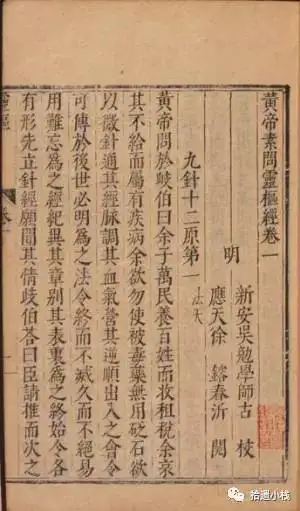 黃帝素問靈樞經卷一
明
新安吳勉學師古校
應天徐鎔春沂閱
九針十二原第一 法天
黃帝問於岐伯曰余子萬民養百姓而收租稅余哀
其不給而屬有疾病余欲勿使被毒藥無用砭石欲
以微針通其經脈調其血氣營其逆順出入之會令
可傳於後世必明爲之法令終而不滅久而不絕易
用難忘爲之經紀異其章別其表裏爲之終始令各
有形先立針經願聞其情岐伯答曰臣請推而次之
靈樞
卷一
拾遗小栈